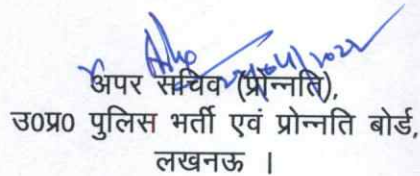 अपर सचिव (प्रोन्नति),
उ0प्र0 पुलिस भर्ती एवं प्रोन्नति बोर्ड,
लखनऊ ।